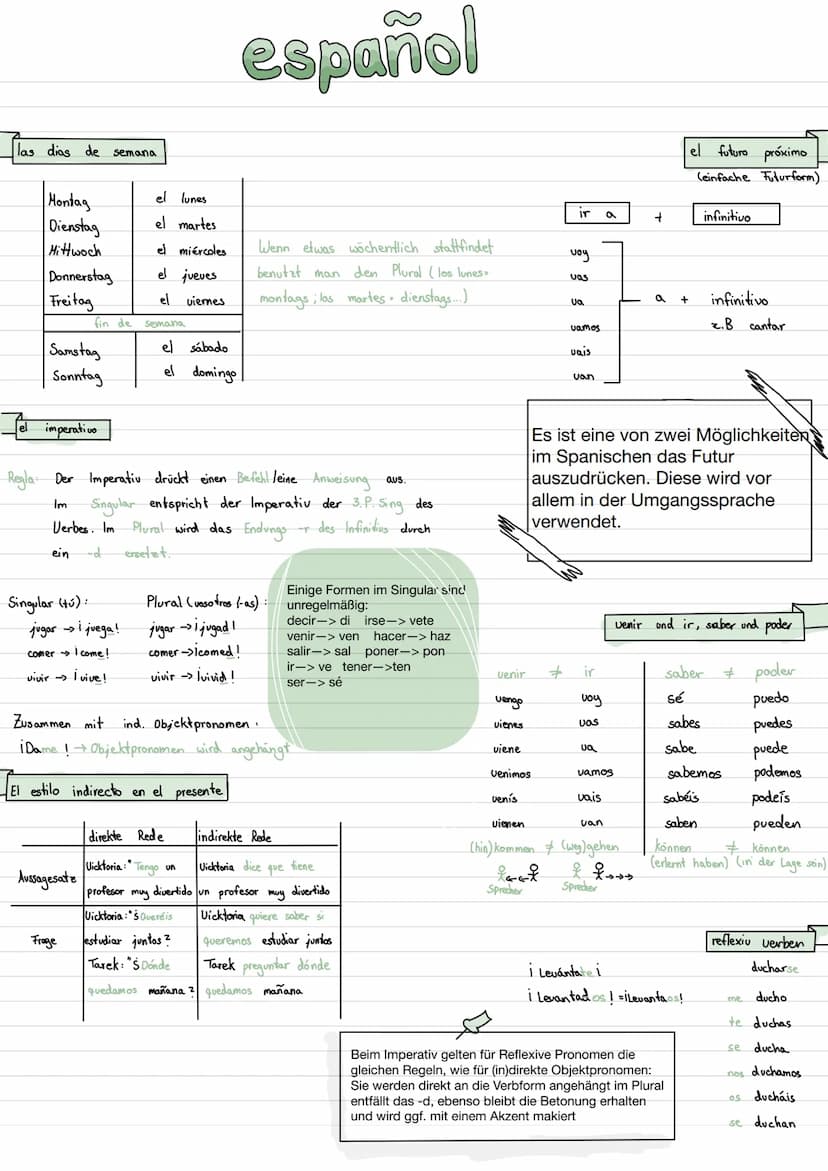 español
las dias de semana
Montag el lunes
Dienstag el martes
Mittwoch el miércoles
Donnerstag el jueves
Freitag el viernes
fin de semana
Samstag el sábado
Sonntag el domingo
Wenn etwas wöchentlich stattfindet
benutzt man den Plural (los lunes=
montags; los martes = dienstags...)
el futuro próximo
(einfache Futurform)
ir a + infinitivo
voy
vas
va
vamos
vais
van
a + infinitivo
z.B cantar
Es ist eine von zwei Möglichkeiten
im Spanischen das Futur
auszudrücken. Diese wird vor
allem in der Umgangssprache
verwendet.
el imperativo
Regla: Der Imperativ drückt einen Befehl/eine Anweisung aus.
Im Singular entspricht der Imperativ der 3.P. Sing des
Verbes. Im Plural wird das Endungs -r des Infinitivs durch
ein -d ersetzt.
Singular (tú):
jugar → ¡juega!
comer → ¡come!
vivir → ¡vive!
Plural (vosotros (-as):
jugar → ¡jugad!
comer → ¡comed!
vivir → ¡vivid!
Einige Formen im Singular sind
unregelmäßig:
decir—> di irse—> vete
venir—> ven hacer—> haz
salir—> sal poner—> pon
ir—> ve tener—>ten
ser—> sé
Zusammen mit ind. Objektpronomen:
¡Dame! → Objektpronomen wird angehängt
El estilo indirecto en el presente
direkte Rede indirekte Rede
Aussagesatz
Vicktoria: "Tengo un
profesor muy divertido
Vicktoria dice que tiene
un profesor muy divertido
Frage
Vicktoria: "¿Queréis
estudiar juntos?
Vicktoria quiere saber si
queremos estudiar juntos
Tarek: "¿Dónde
quedamos mañana?
Tarek preguntar dónde
quedamos mañana
venir und ir, saber und poder
venir ≠ ir
vengo voy
vienes vas
viene va
venimos vamos
venís vais
vienen van
(hin)kommen ≠ (weg)gehen
Sprecher Sprecher
saber ≠ poder
sé puedo
sabes puedes
sabe puede
sabemos podemos
sabéis podeís
saben pueden
können ≠ können
(erlernt haben) (in der Lage sein)
reflexiv verben
ducharse
me ducho
te duchas
se ducha
nos duchamos
os ducháis
se duchan
¡Levántate¡
¡Levantados! = ¡Levantaos!
Beim Imperativ gelten für Reflexive Pronomen die
gleichen Regeln, wie für (in)direkte Objektpronomen:
Sie werden direkt an die Verbform angehängt im Plural
entfällt das -d, ebenso bleibt die Betonung erhalten
und wird ggf. mit einem Akzent makiert